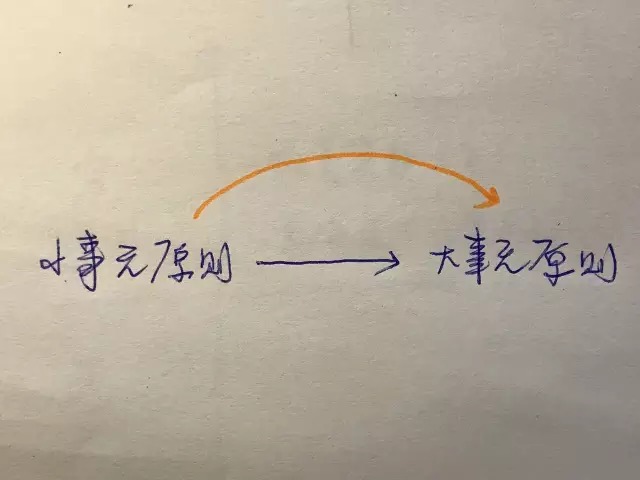 小事无原则 → 大事无原则